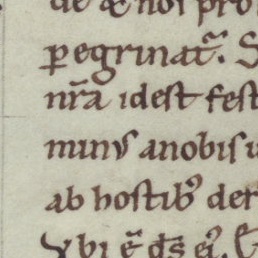 de & nos pro
peregrinat̄. S
nr̄a idest fest
minus anobis
ab hostib; der
Vbi ē d̄s ei